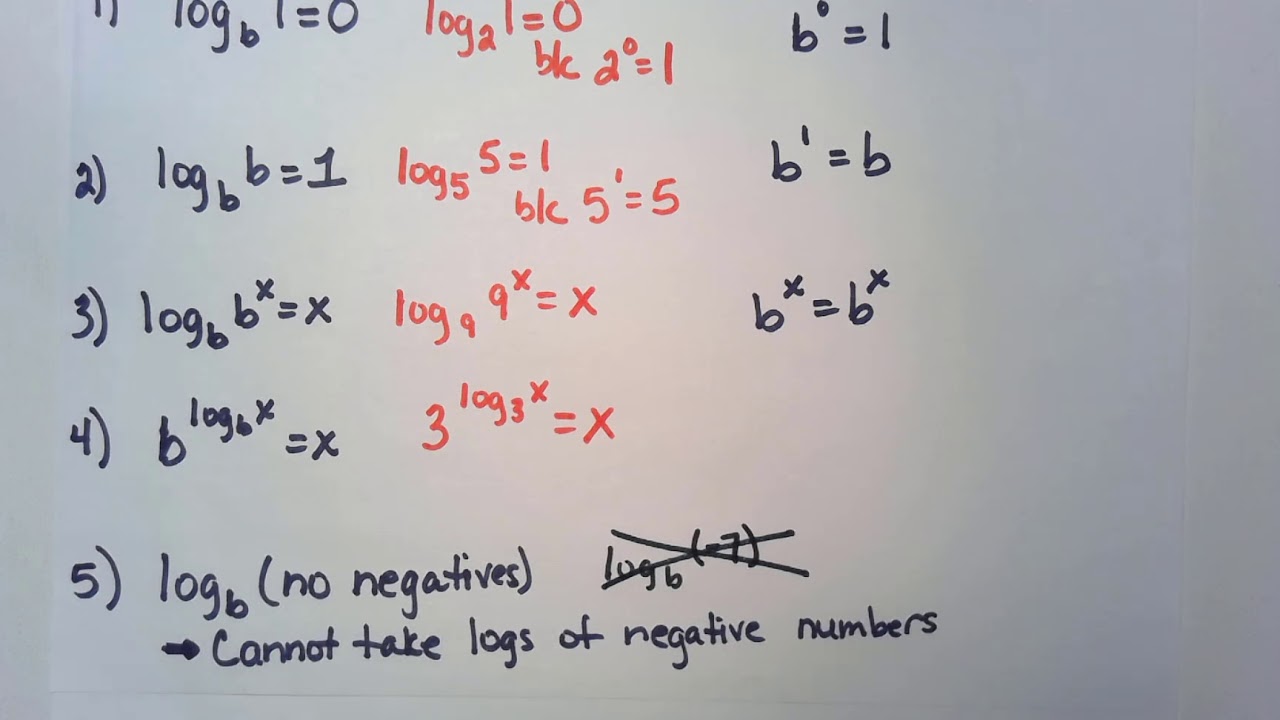 1) log_b 1=0 log_2 1=0 b^0=1
b/c 2^0=1
2) log_b b=1 log_5 5=1 b^1=b
b/c 5^1=5
3) log_b b^x=x log_9 9^x=x b^x=b^x
4) b^{log_b x}=x 3^{log_3 x}=x
5) log_b (no negatives) log_b (-7)
→ Cannot take logs of negative numbers